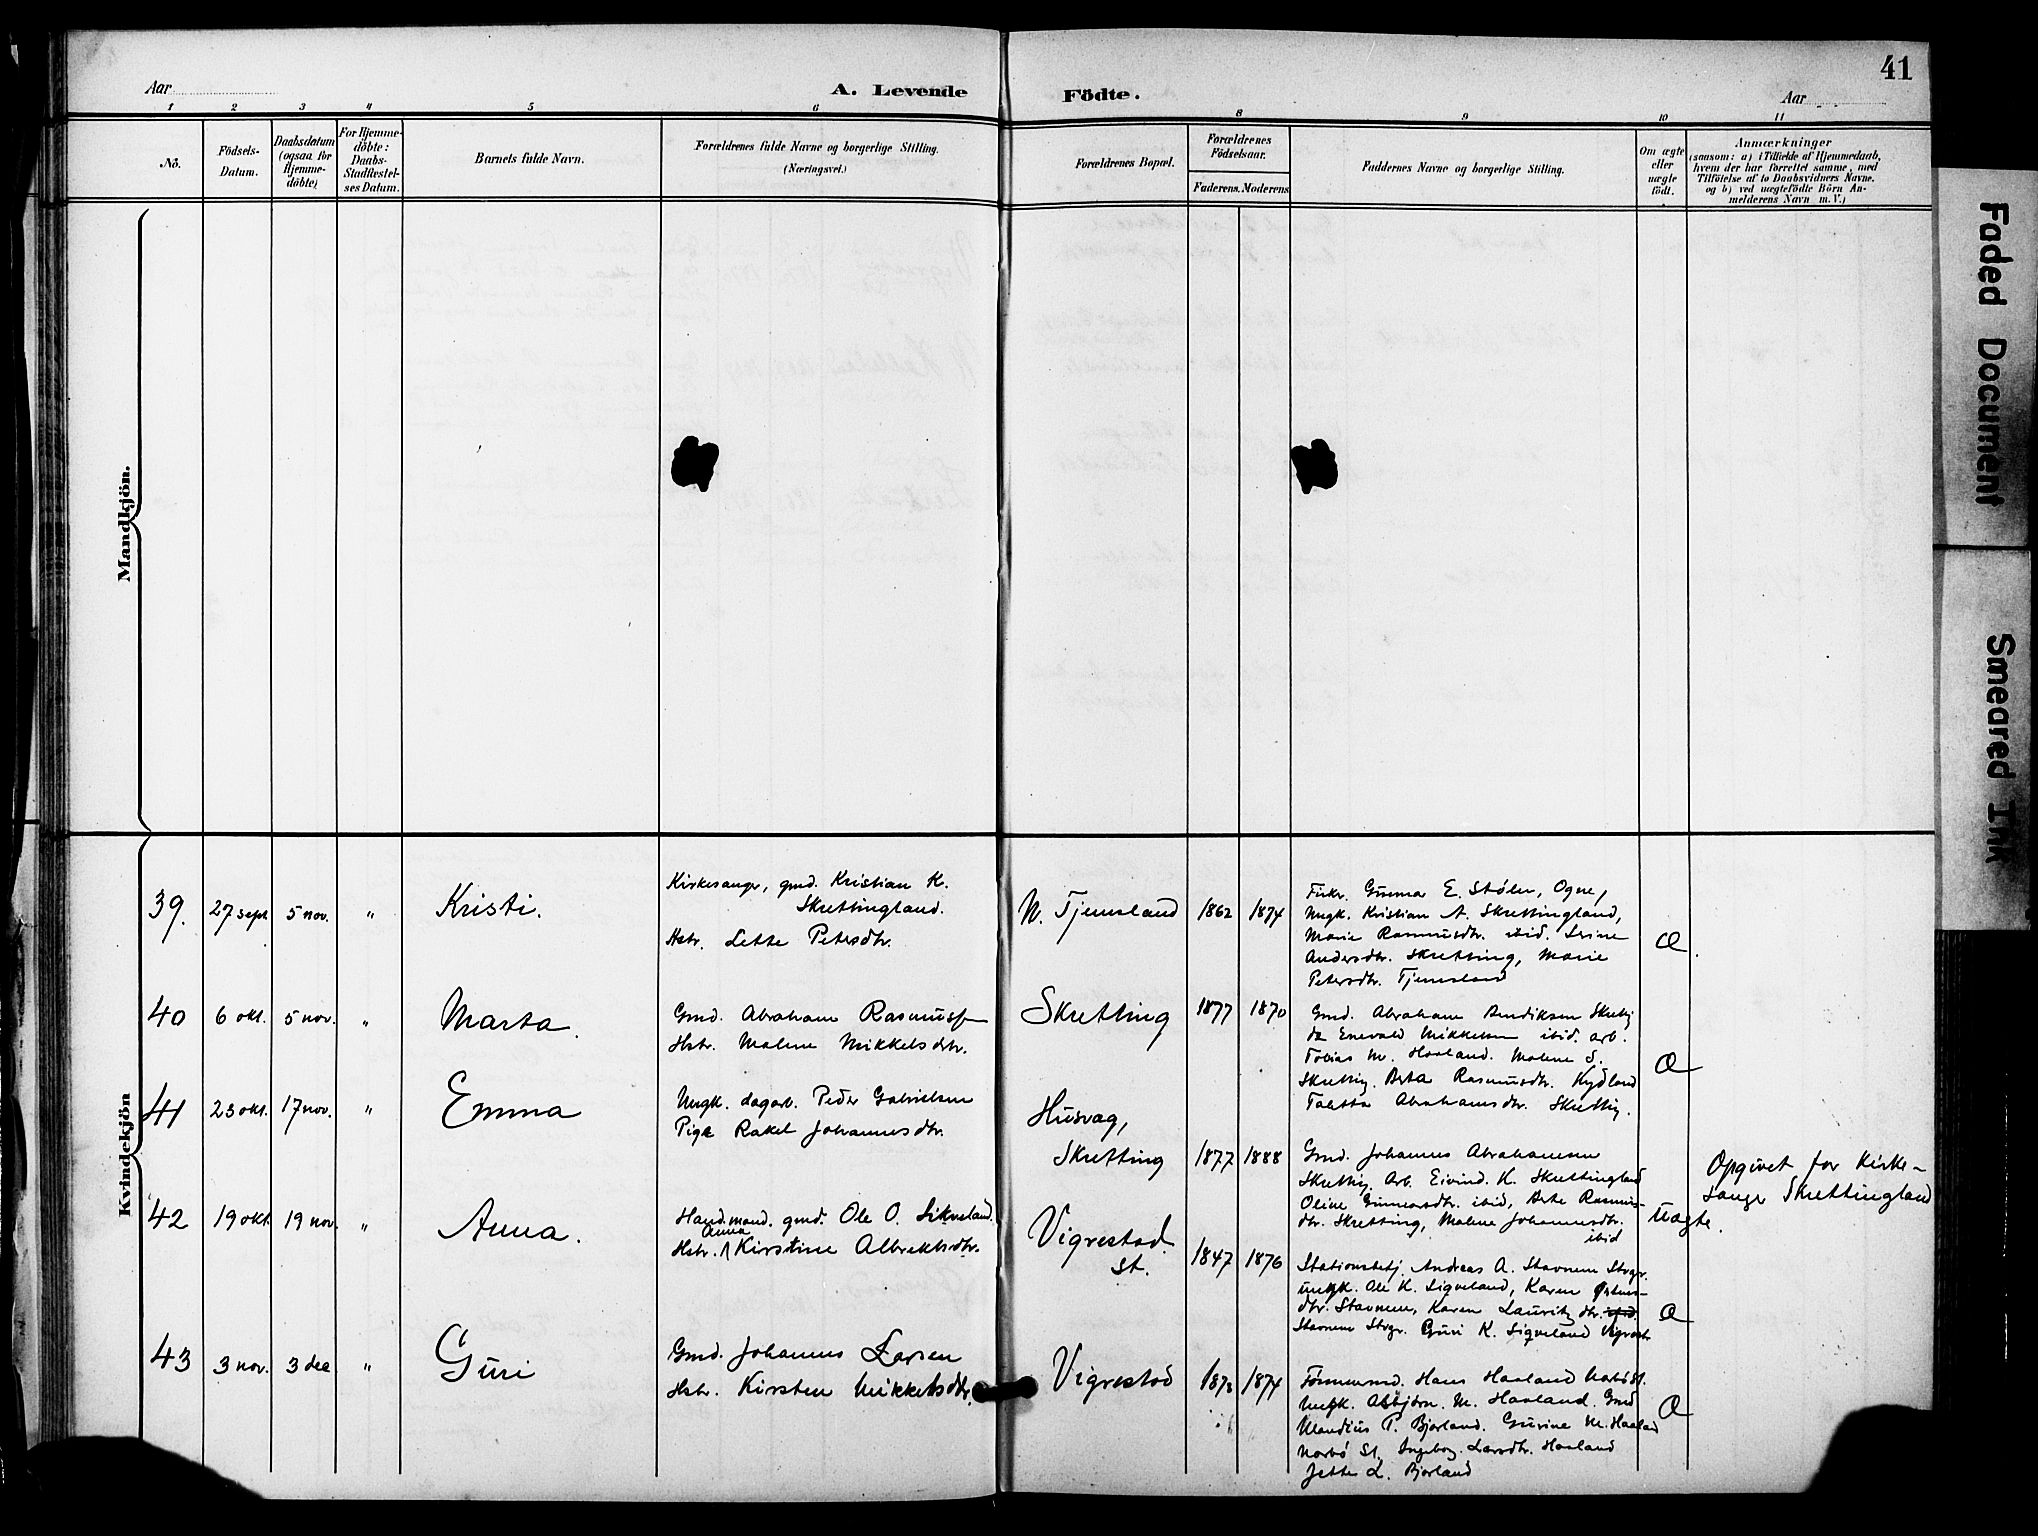 41
Aar
A. Levende Födte.
Aar
1 2 3 4 5 6 8 9 10 11
No.
Födsels-
Datum.
Daabsdatum
(ogsaa for
Hjemme-
döbte)
For Hjemme-
döbte:
Daabs-
Stadfestel-
ses Datum.
Barnets fulde Navn.
Forældrenes fulde Navne og borgerlige Stilling.
(Næringsvei.)
Forældrenes Bopæl.
Forældrenes
Födselsaar.
Faderens. Moderens
Faddernes Navne og borgerlige Stilling.
Om ægte
eller
uægte
födt.
Anmærkninger
(saasom: a) i Tilfælde af Hjemmedaab,
hvem der har forrettet samme, med
Tilföielse af to Daabsvidners Navne.
og b) ved uægtefödte Börn An-
melderens Navn m.V.)
Mandkjön.
Kvindekjön
39. 27 sept 5 nov. " Kristi.
Kirkesanger, gmd. Kristian K.
Skrettingland.
Hstr. Lette Petersdtr.
N. Tjemsland 1862 1874
Firkr. Gunnar E. Stølen, Ogne,
Ungk. Kristian A. Skrettingland,
Marie Rasmusdtr. ibid. Serine
Andersdtr. Skretting, Marie
Petersdtr. Tjemsland
Æ
40 6 okt. 5 nov. " Marta.
Gmd. Abraham Rasmussen
Hstr. Malene Mikkelsdtr.
Skretting 1877 1870
Gmd. Abraham Bendiksen Skrettig
do Enevald Mikkelsen ibid. arb.
Tobias M. Haaland. Malene S.
Skrettig. Berta Rasmusdtr. Kydland
Taletta Abrahamsdtr. Skrettig.
Æ
41 23 okt. 17 nov. " Emma
Ungk. dagarb. Peder Gabrielsen
Pige Rakel Johannesdtr.
Husvag,
Skretting 1877 1888
Gmd. Johannes Abrahamsen
Skrettig. Arb. Eivind K. Skrettingland
Oline Gunnarsdtr. ibid, Berte Rasmus-
dtr. Skretting, Malene Johannesdtr.
ibid
Uægte.
Opgivet for Kirke-
sanger Skrettingland
42 19 okt. 19 nov. " Anna.
Hand.mand. gmd. Ole O. Sikveland.
Anna
Hstr. Kirstine Albrektsdtr.
Vigrestad
St. 1847 1876
Stationsbetj. Andreas A. Stavnem Stvgr.
ungk. Ole K. Sigveland, Karen
dtr. Stavnem, Karen Lauritzdtr. ibid
Stavnem Stvgr. Guri K. Sigveland Vigrestr
Æ
43 3 nov. 3 dec " Guri
Gmd. Johannes Larsen
Hstr. Kirsten Mikkelsdtr.
Vigrestad 1873 1874
Tømmermd. Hans Haaland Narbö St.
Ungk. Asbjörn. M. Haaland. Gmd
Mandius P. Bjorland. Gurine M. Haaland
Narbö St. Ingebog. Larsdtr. Haaland
Jette L. Bjorland
Æ
Faded Document
Smeared Ink